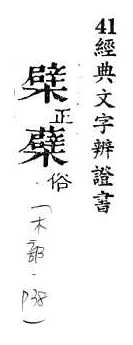 41 經典文字辨證書
檗正蘗俗
(木部-p38)